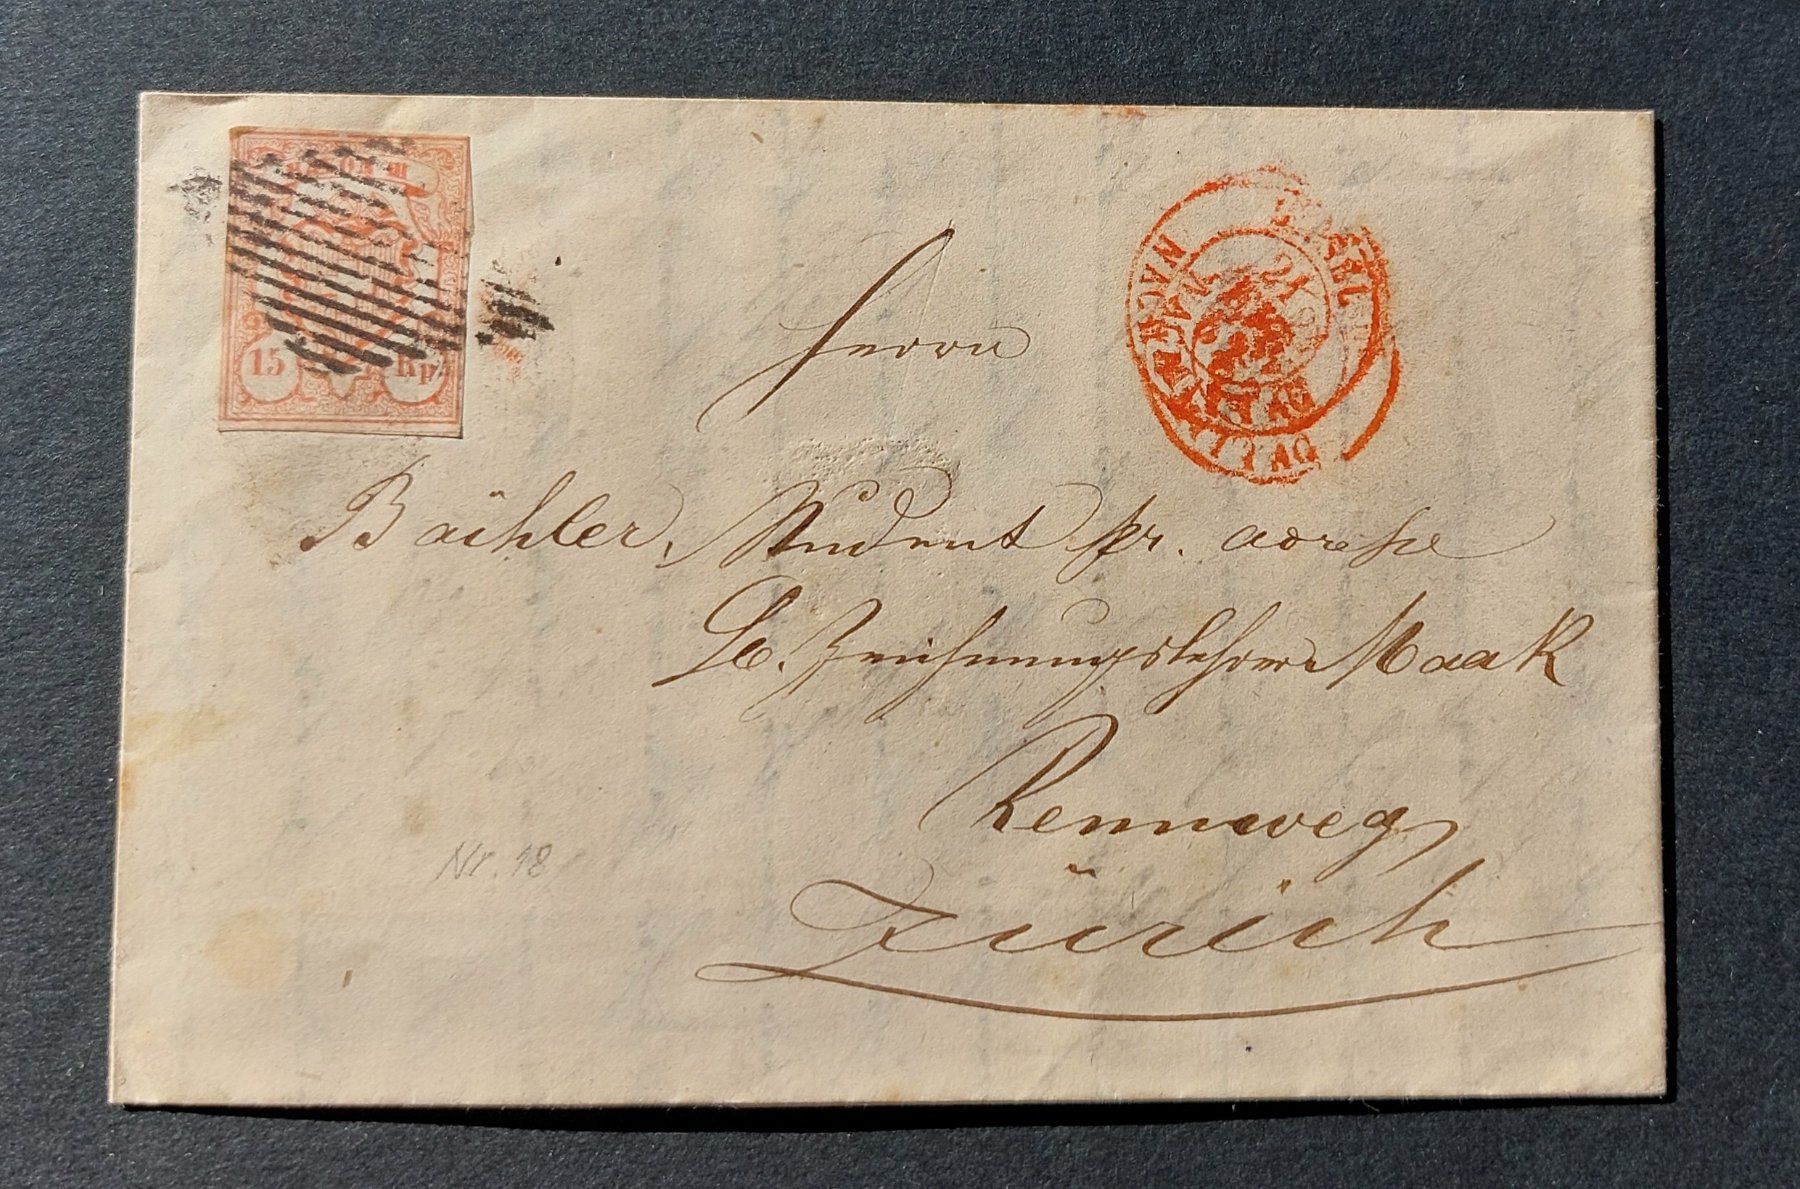 15 Rp
BASEL
NACHMITTAG
Herrn
Bächler, Student pr. adresse
Hr. Zeichnungslehrer Maak
Rennweg
Zürich
Nr. 18